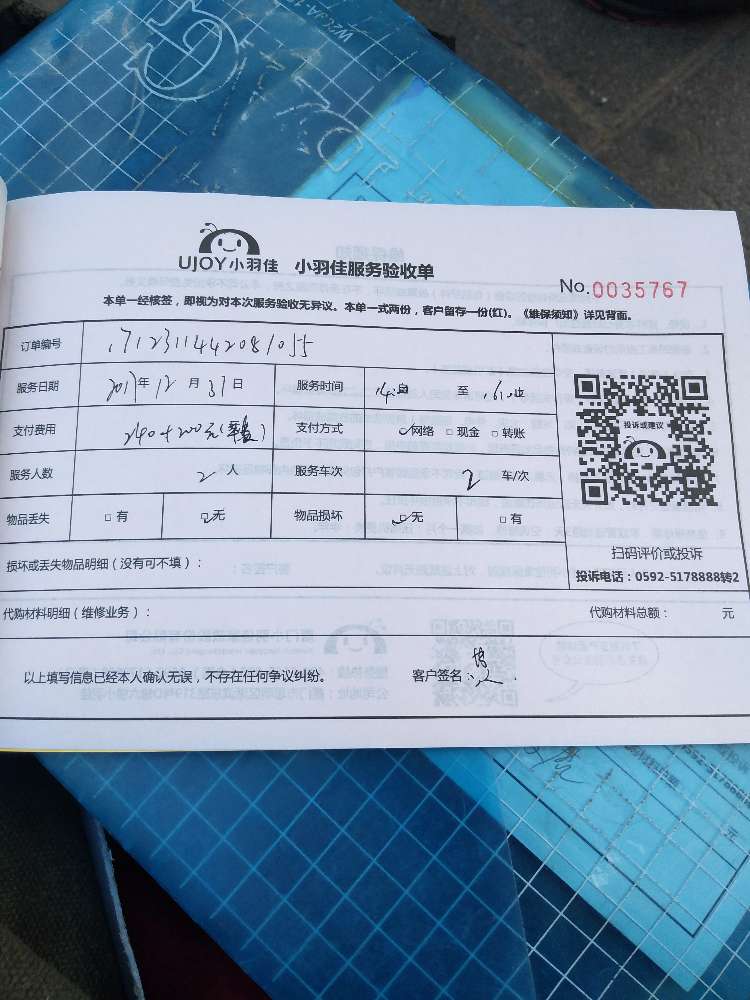 UJOY小羽佳 小羽佳服务验收单
No.0035767
本单一经核签，即视为对本次服务验收无异议。本单一式两份，客户留存一份(红)。《维保须知》详见背面。
订单编号 1712311442081055
服务日期 2017年 12 月 31 日 服务时间 14:00 至 16:10
支付费用 240+200元 支付方式 ☑网络 □现金 □转账
投诉或建议
服务人数 2 人 服务车次 2 车/次
物品丢失 □有 ☑无 物品损坏 ☑无 □有
扫码评价或投诉
损坏或丢失物品明细（没有可不填）：
投诉电话：0592-5178888转2
代购材料明细（维修业务）： 代购材料总额： 元
以上填写信息已经本人确认无误，不存在任何争议纠纷。 客户签名：